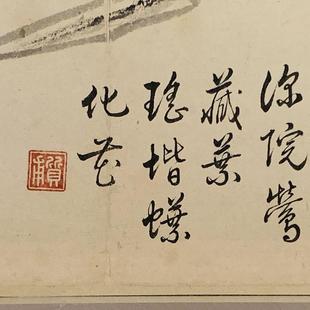 深院鶯
藏葉
瑤堦蝶
化花